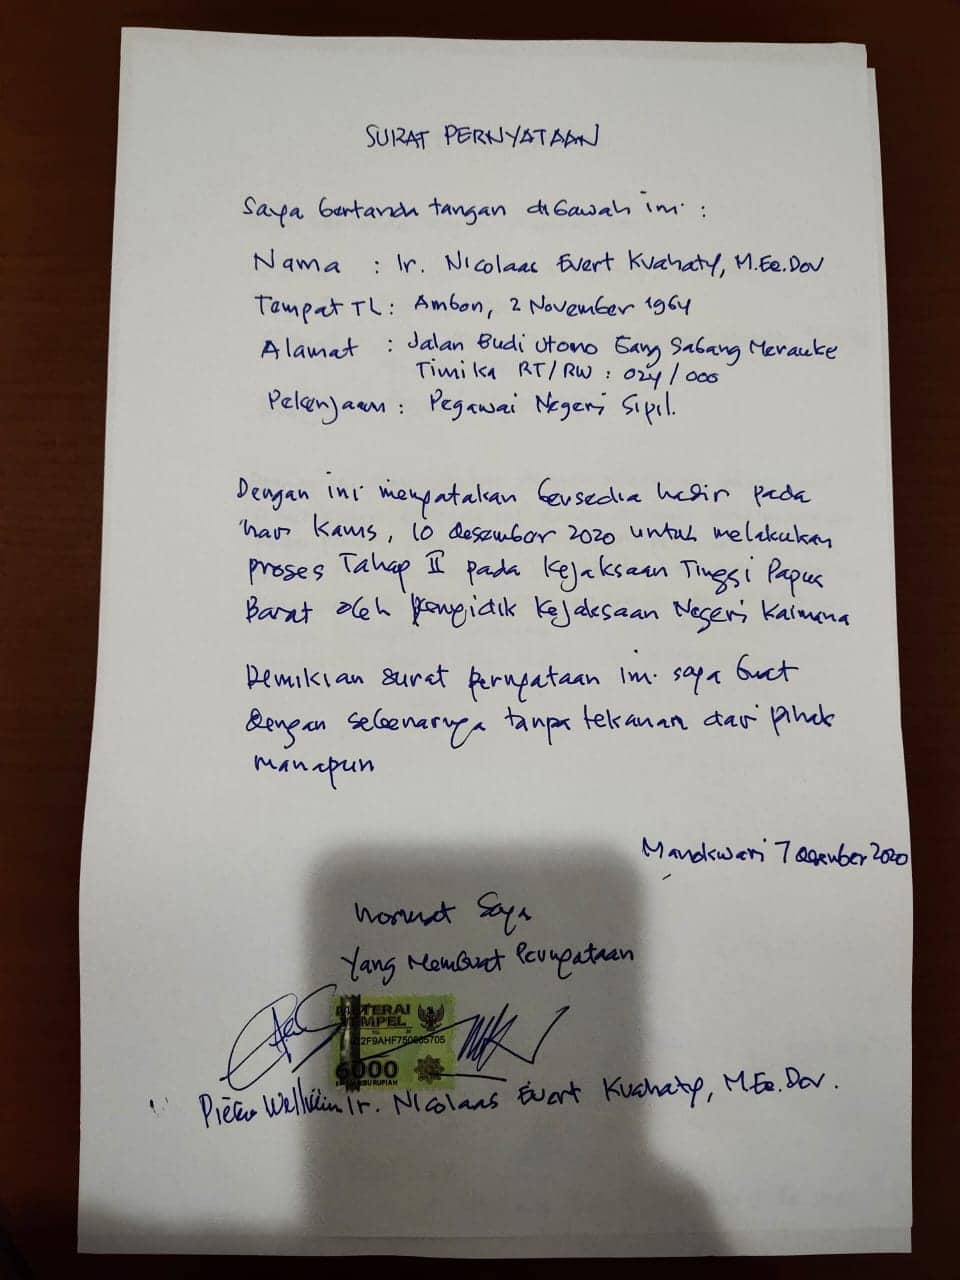 SURAT PERNYATAAN
Saya bertanda tangan dibawah ini :
Nama : Ir. Nicolaas Evert Kuahaty, M.Ec.Dev
Tempat TL : Ambon, 2 November 1964
Alamat : Jalan Budi Utomo Gang Sabang Merauke
Timika RT/RW : 024/000
Pekerjaan : Pegawai Negeri Sipil.
Dengan ini menyatakan bersedia hadir pada
hari Kamis, 10 desember 2020 untuk melakukan
proses Tahap II pada Kejaksaan Tinggi Papua
Barat oleh penyidik Kejaksaan Negeri Kaimana
Demikian surat pernyataan ini saya buat
dengan sebenarnya tanpa tekanan dari pihak
manapun
Manokwari 7 Desember 2020
Hormat Saya
Yang Membuat Pernyataan
TERAI
EMPEL
6000
RUPIAH
Ir. Nicolaas Evert Kuahaty, M.Ec.Dev.